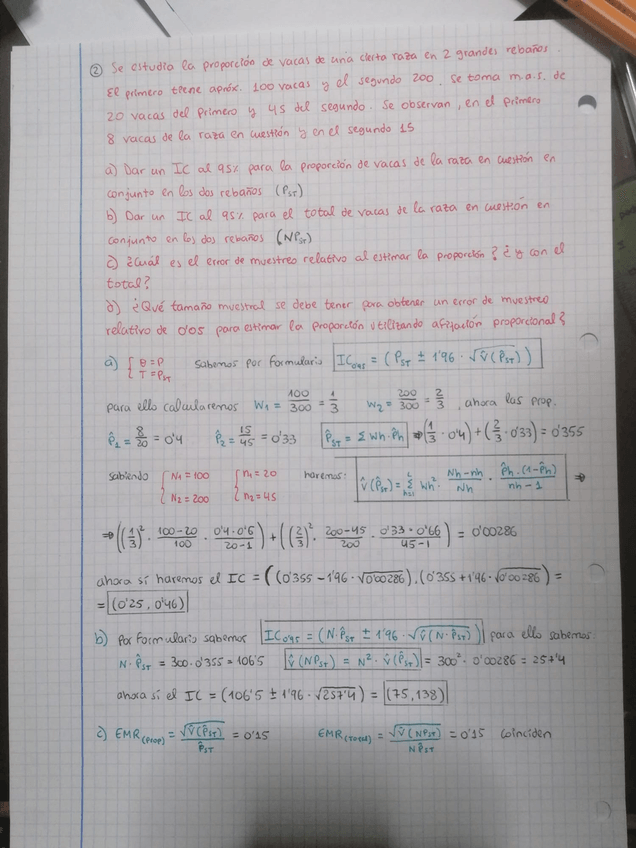 ② Se estudia la proporción de vacas de una cierta raza en 2 grandes rebaños.
El primero tiene apróx. 100 vacas y el segundo 200. Se toma m.a.s. de
20 vacas del primero y 45 del segundo. Se observan, en el primero
8 vacas de la raza en cuestión y en el segundo 15
a) Dar un IC al 95% para la proporción de vacas de la raza en cuestión en
conjunto en los dos rebaños (P_ST)
b) Dar un IC al 95% para el total de vacas de la raza en cuestión en
conjunto en los dos rebaños (NP_ST)
c) ¿Cuál es el error de muestreo relativo al estimar la proporción? ¿y con el
total?
d) ¿Qué tamaño muestral se debe tener para obtener un error de muestreo
relativo de 0'05 para estimar la proporción utilizando afijación proporcional?
a) { θ = P T = P_ST sabemos por formulario IC_0'95 = (P_ST ± 1'96 · √V̂(P̂_ST))
para ello calcularemos W₁ = 100/300 = 1/3 W₂ = 200/300 = 2/3, ahora las prop.
P̂₁ = 8/20 = 0'4 P̂₂ = 15/45 = 0'33 P̂_ST = Σ Wh · P̂h ⇒ (1/3 · 0'4) + (2/3 · 0'33) = 0'355
sabiendo { N₁ = 100 N₂ = 200 { n₁ = 20 n₂ = 45 haremos: V̂(P̂_ST) = Σ_{h=1}^{L} Wh² · (Nh-nh)/Nh · (P̂h·(1-P̂h))/(nh-1) ⇒
⇒ ((1/3)² · (100-20)/100 · (0'4·0'6)/(20-1)) + ((2/3)² · (200-45)/200 · (0'33·0'66)/(45-1)) = 0'00286
ahora sí haremos el IC = ((0'355 - 1'96 · √0'00286), (0'355 + 1'96 · √0'00286) =
= (0'25, 0'46)
b) Por formulario sabemos IC_0'95 = (N·P̂_ST ± 1'96 · √V̂(N·P̂_ST)) para ello sabemos
N · P̂_ST = 300 · 0'355 = 106'5 V̂(NP_ST) = N² · V̂(P̂_ST) = 300² · 0'00286 = 257'4
ahora sí el IC = (106'5 ± 1'96 · √257'4) = (75, 138)
c) EMR_(Prop) = √V̂(P̂_ST)/P̂_ST = 0'15 EMR_(Total) = √V̂(NP_ST)/NP̂_ST = 0'15 Coinciden